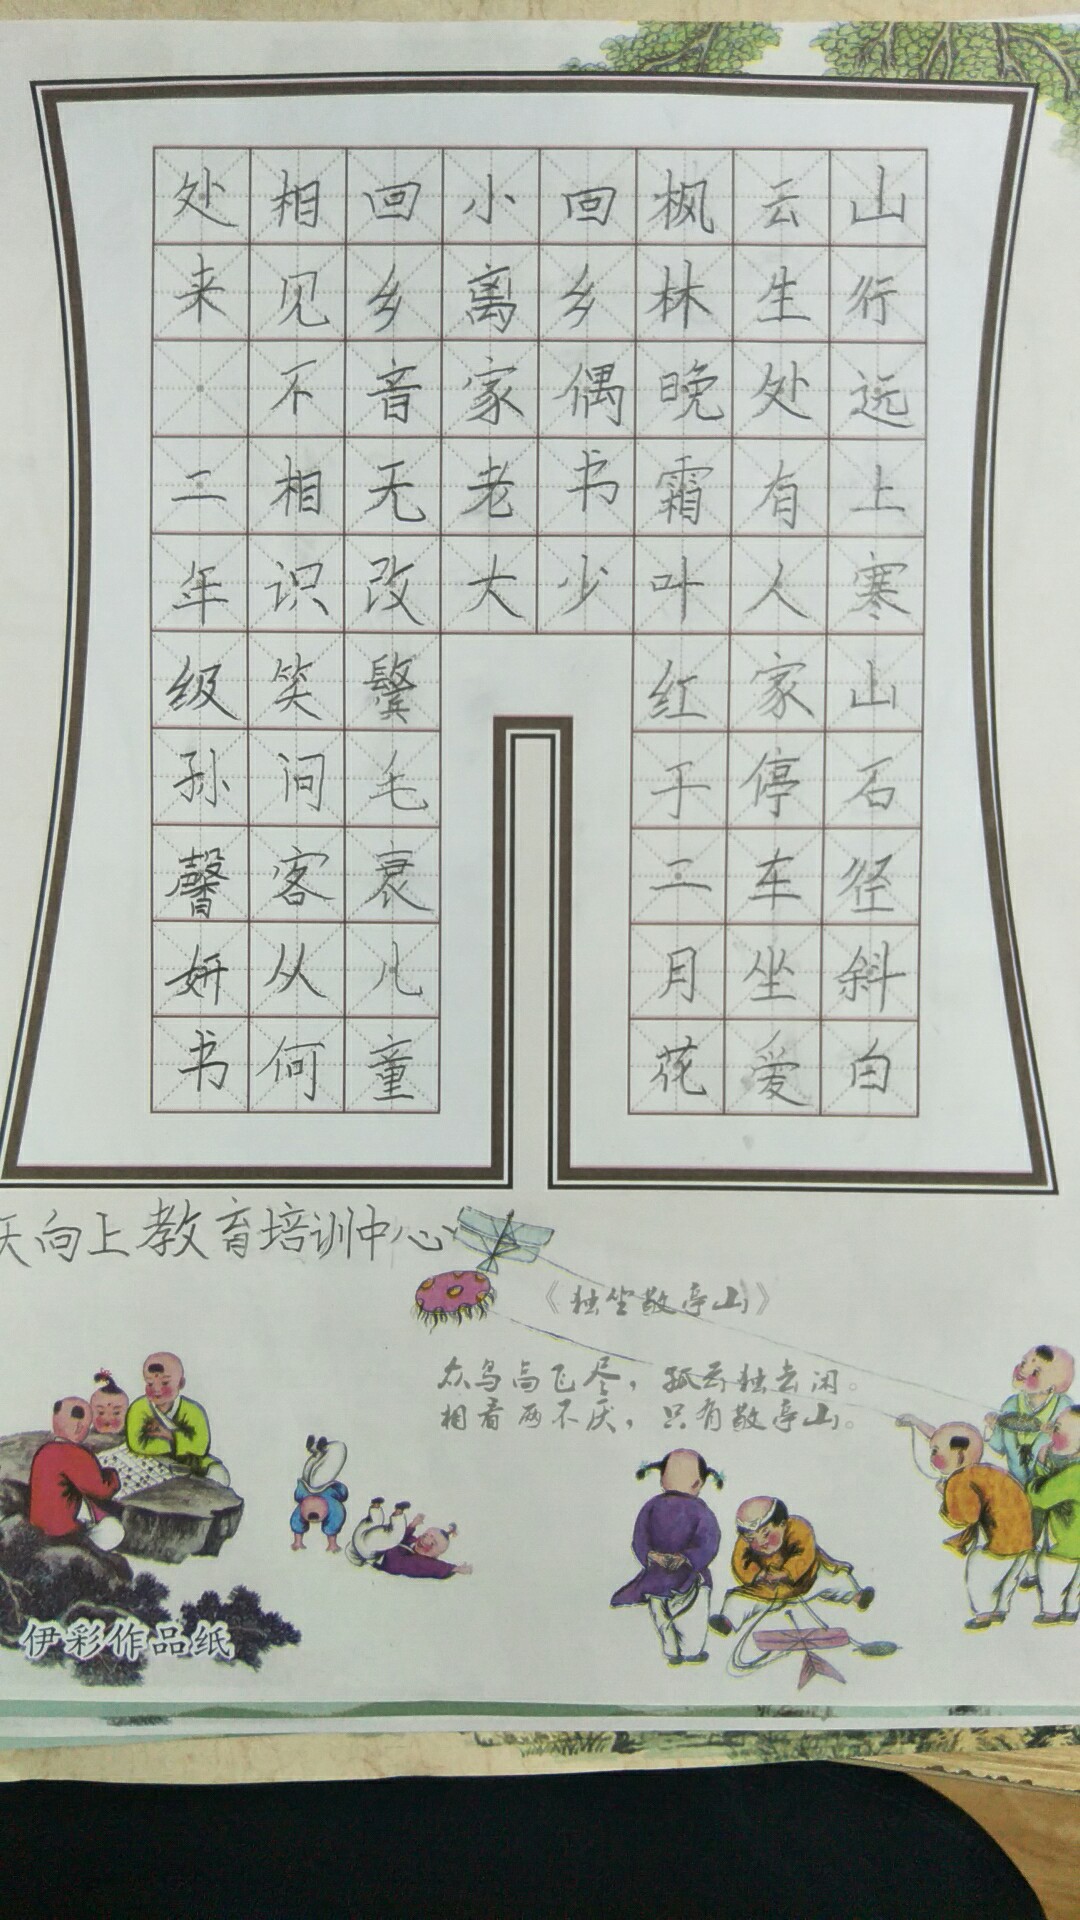 山行远上寒山石径斜白
云生处有人家停车坐爱
枫林晚霜叶红于二月花
回乡偶书少
小离家老大
回乡音无改鬓毛衰儿童
相见不相识笑问客从何
处来·二年级孙馨妍书
天向上教育培训中心
《独坐敬亭山》
众鸟高飞尽，孤云独去闲。
相看两不厌，只有敬亭山。
伊彩作品纸